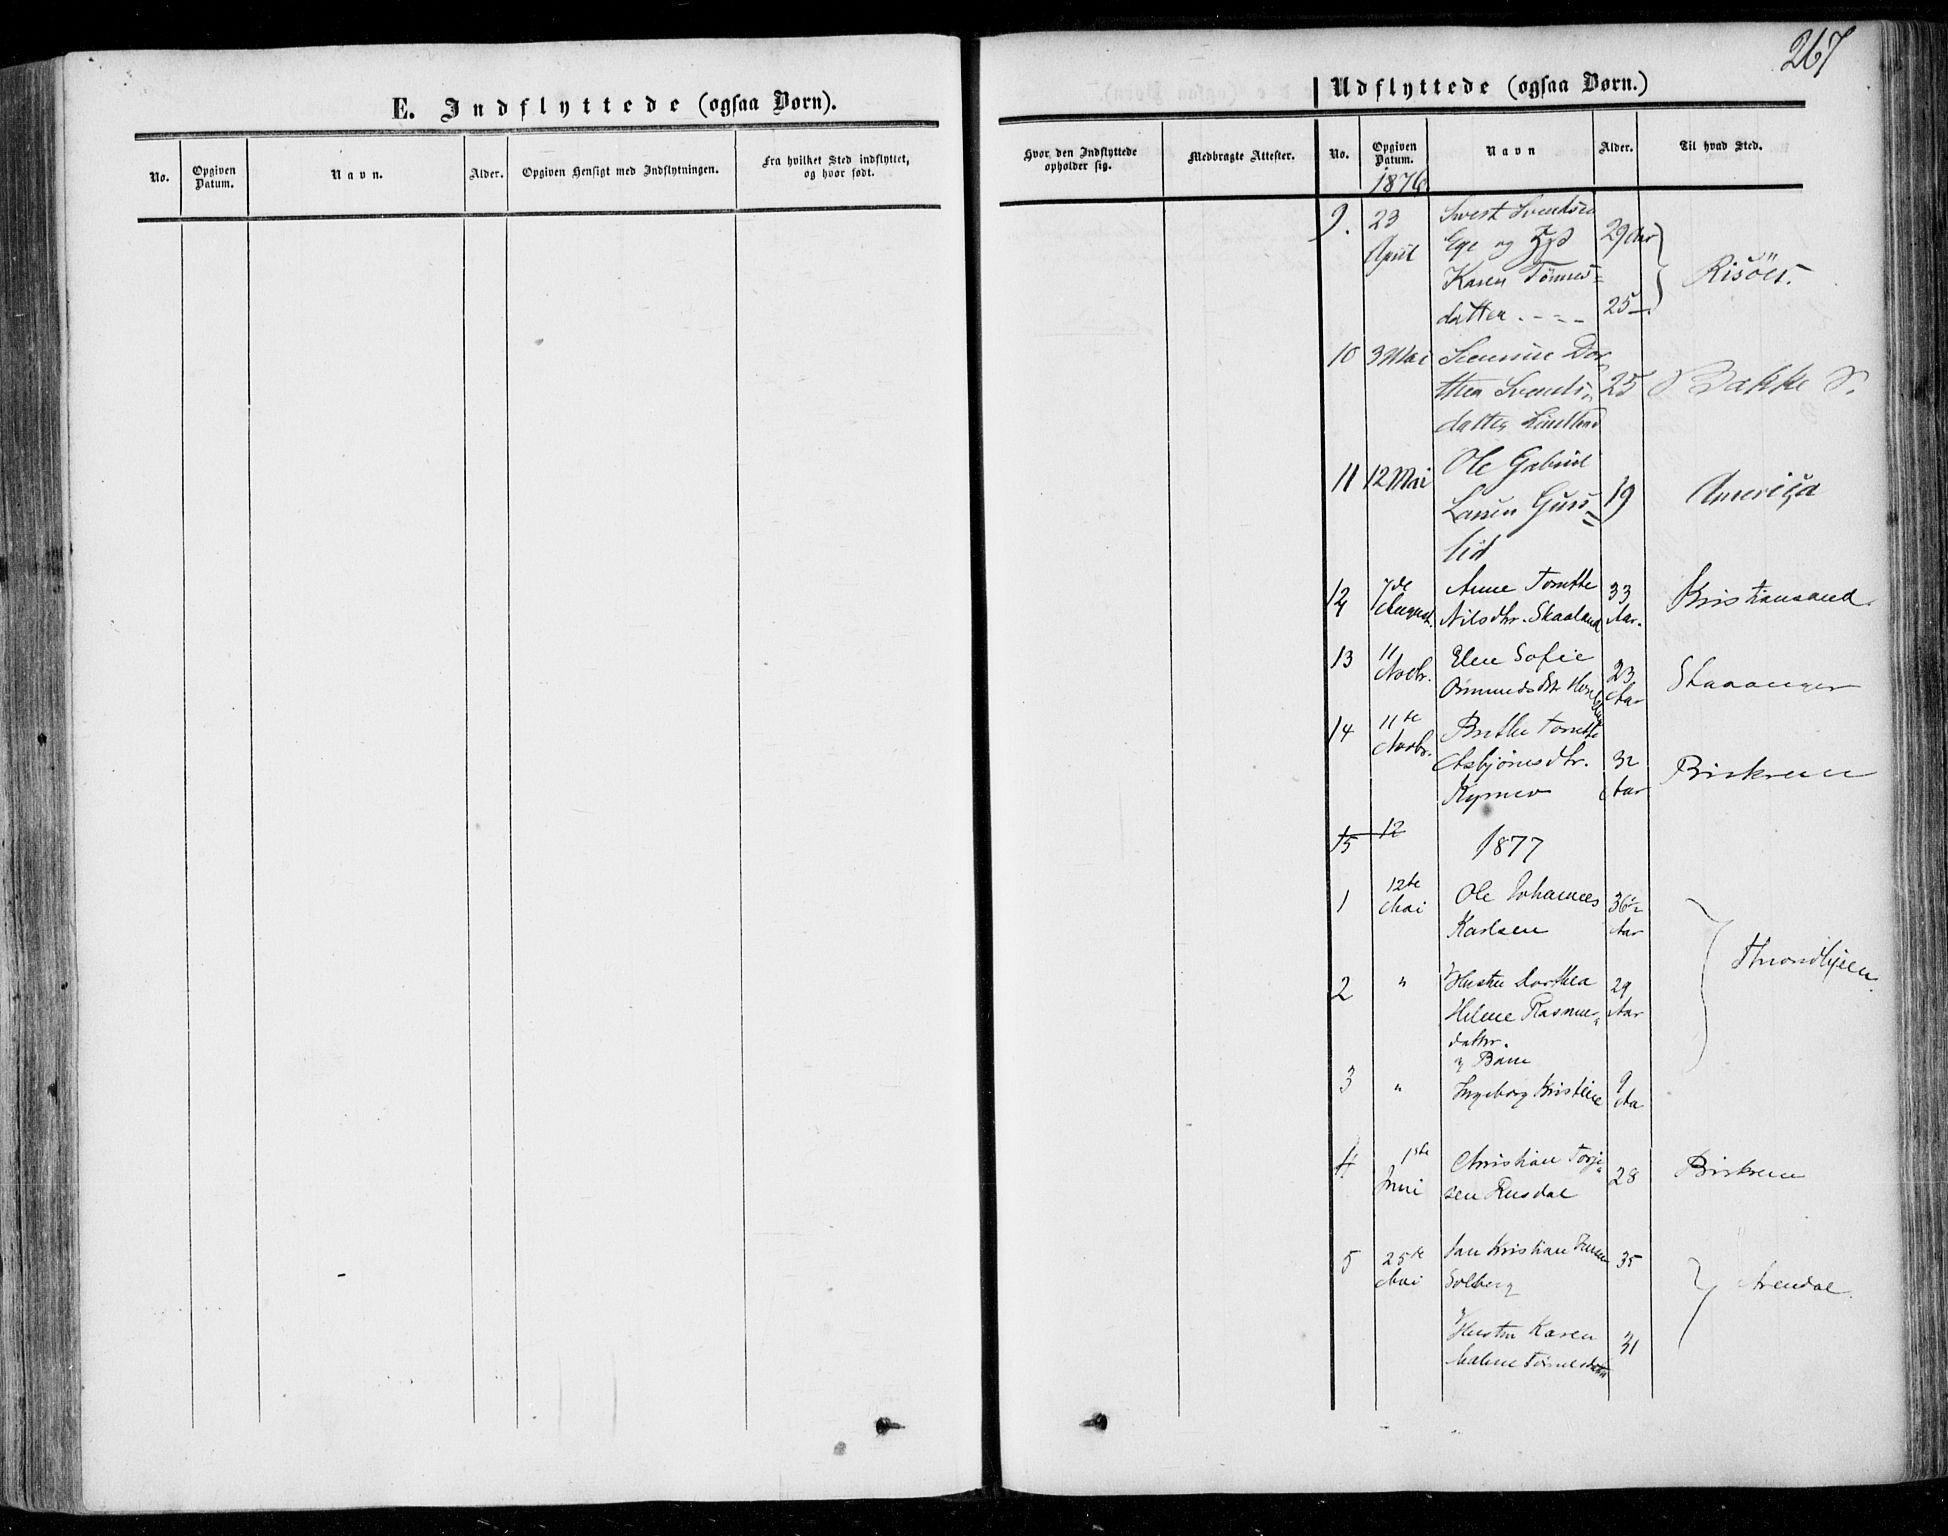 267
E. Indflyttede (ogsaa Børn).
No.
Opgiven Datum.
Navn.
Alder.
Opgiven Hensigt med Indflytningen.
Fra hvilket Sted indflyttet,
og hvor født.
Udflyttede (ogsaa Børn.)
Hvor den Indflyttede
opholder sig.
Medbragte Attester.
No.
Opgiven Datum.
Navn
Alder.
Til hvad Sted.
1876
9. 23 Svendsen 29 Aar
April Ege og
Karen Tønnes= Risöer.
datter . - - - 25 -
10 3 Mai Dor
thea Svends= 25 Bakke S.
datter
11 12 Mai Ole Gabriel
Larsen Guss= 19 America
lid
12 7de Anne Tomtte 33 Kristiansand.
August. Nilsdtr. Skaaland Aar.
13 11 Elen Sofie 23 Stavanger
Novbr. Osmundsdtr Aar
14 11te Berthe Tomtte
Novbr. Asbjørnsdtr. 32 Birkrem
Aar
15 12
1877
1 12te Ole Johannes 36½
Mai Karlsen Aar
Throndhjem.
2 " Hustru Dorthea 29
Helene Rasmus= Aar
datter.
og Barn
3 " Ingeborg Kristine 9 Aa
4 1ste Christian Torje= Birkrem
Juni sen Rusdal 28
5 25de Jan Kristian 35
Mai Solberg Arendal.
Hustru Karen 31
Malene Tønnesdatter